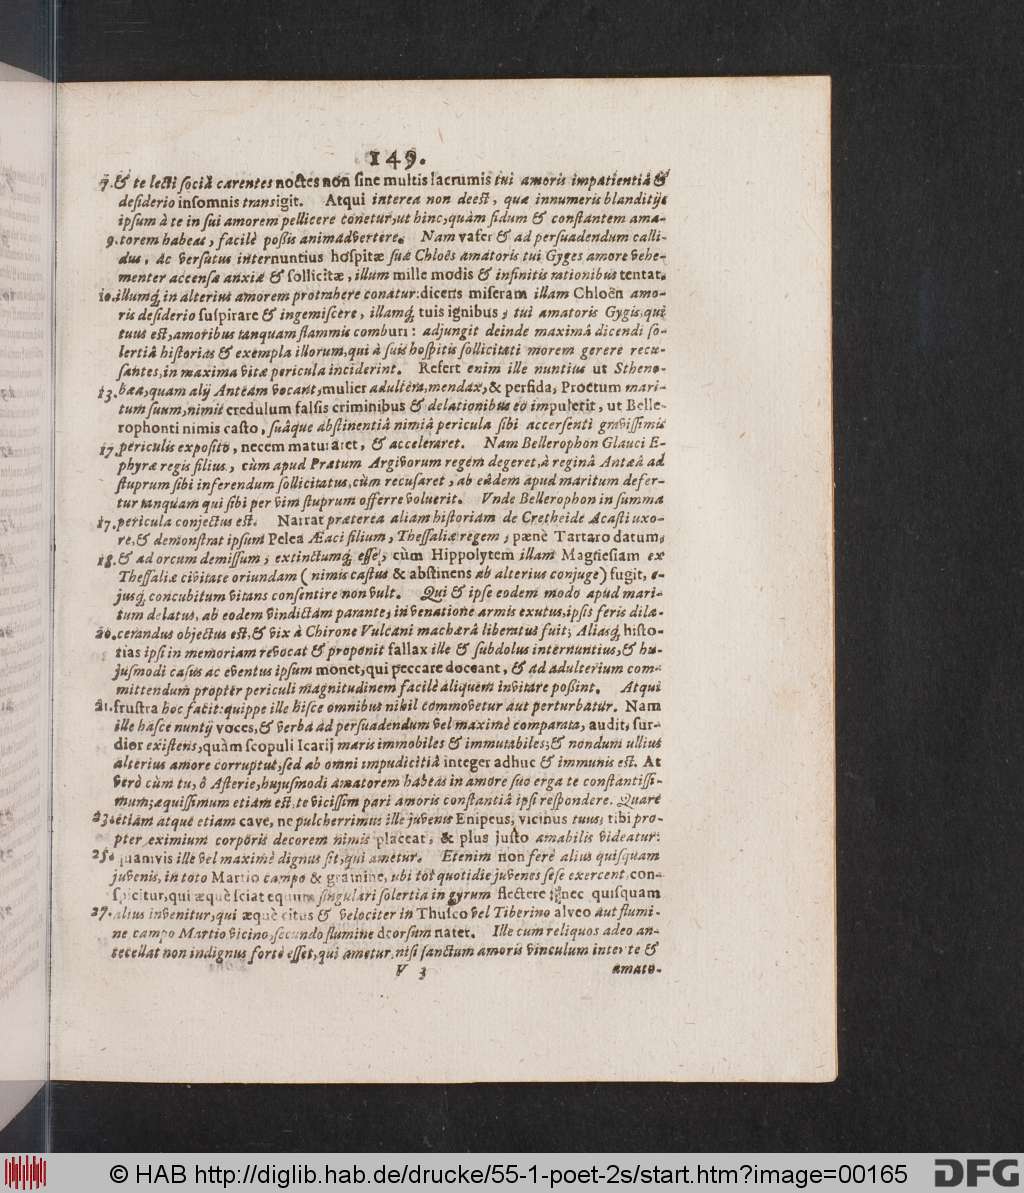 149.
7. & te lecti sociâ carentes noctes non sine multis lacrumis tui amoris impatientiâ &
desiderio insomnis transigit. Atqui interea non deest, quæ innumeris blanditijs
ipsum à te in sui amorem pellicere conetur, ut hinc, quàm fidum & constantem ama-
9. torem habeas, facilè poßis animadvertere. Nam vafer & ad persuadendum calli-
dus, ac versutus internuntius hospitæ suæ Chloës amatoris tui Gyges amore vehe-
menter accensæ anxiæ & sollicitæ, illum mille modis & infinitis rationibus tentat,
10. illumq́; in alterius amorem protrahere conatur: dicens miseram illam Chloën amo-
ris desiderio suspirare & ingemiscere, illamq́; tuis ignibus, tui amatoris Gygis, qui
tuus est, amoribus tanquam flammis comburi: adjungit deinde maximâ dicendi so-
lertiâ historias & exempla illorum, qui à suis hospitis sollicitati morem gerere recu-
santes, in maxima vitæ pericula inciderint. Refert enim ille nuntius ut Stheno-
13. bæa, quam alij Antæam vocant, mulier adultera, mendax, & perfida, Prœtum mari-
tum suum, nimis credulum falsis criminibus & delationibus eo impulerit, ut Belle-
rophonti nimis casto, suâque abstinentiâ nimiâ pericula sibi accersenti gravissimis
17. periculis exposito, necem maturaret, & acceleraret. Nam Bellerophon Glauci E-
phyræ regis filius, cùm apud Prætum Argivorum regem degeret, à reginâ Antæâ ad
stuprum sibi inferendum sollicitatus, cùm recusaret, ab eâdem apud maritum defer-
tur tanquam qui sibi per vim stuprum offerre voluerit. Unde Bellerophon in summa
17. pericula conjectus est. Narrat præterea aliam historiam de Cretheide Acasti uxo-
re, & demonstrat ipsum Pelea Æaci filium, Thessaliæ regem, pænè Tartaro datum,
18. & ad orcum demissum, extinctumq́; esse, cùm Hippolytem illam Magnesiam ex
Thessaliæ civitate oriundam (nimis castus & abstinens ab alterius conjuge) fugit, e-
jusq́; concubitum vitans consentire non vult. Qui & ipse eodem modo apud mari-
tum delatus, ab eodem vindictam parante, in venatione armis exutus, ipsis feris dila-
20. cerandus objectus est, & vix à Chirone Vulcani machærâ liberatus fuit; Aliasq́; histo-
rias ipsi in memoriam revocat & proponit fallax ille & subdolus internuntius, & hu-
jusmodi casus ac eventus ipsum monet, qui peccare doceant, & ad adulterium com-
mittendum propter periculi magnitudinem facilè aliquem invitare poßint. Atqui
21. frustra hoc facit: quippe ille hisce omnibus nihil commovetur aut perturbatur. Nam
ille hasce nuntij voces, & verba ad persuadendum vel maximè comparata, audit, sur-
dior existens, quàm scopuli Icarij maris immobiles & immutabiles; & nondum ullius
alterius amore corruptus, sed ab omni impudicitiâ integer adhuc & immunis est. At
verò cùm tu, ô Asterie, hujusmodi amatorem habeas in amore suo erga te constantissi-
mum; æquissimum etiam est, te vicissim pari amoris constantiâ ipsi respondere. Quare
23. etiam atque etiam cave, ne pulcherrimus ille juvenis Enipeus, vicinus tuus, tibi pro-
pter eximium corporis decorem nimis placeat, & plus justo amabilis videatur:
25. quamvis ille vel maximè dignus sit, qui ametur. Etenim non ferè alius quisquam
juvenis, in toto Martio campo & gramine, ubi tot quotidie juvenes sese exercent, con-
spicitur, qui æquè sciat equum singulari solertia in gyrum flectere: nec quisquam
27. alius invenitur, qui æquè citus & velociter in Thusco vel Tiberino alveo aut flumi-
ne campo Martio vicino, secundo flumine deorsum natet. Ille cum reliquos adeo an-
tecellat non indignus fortè esset, qui ametur, nisi sanctum amoris vinculum inter te &
V 3 amato-
© HAB http://diglib.hab.de/drucke/55-1-poet-2s/start.htm?image=00165 DFG